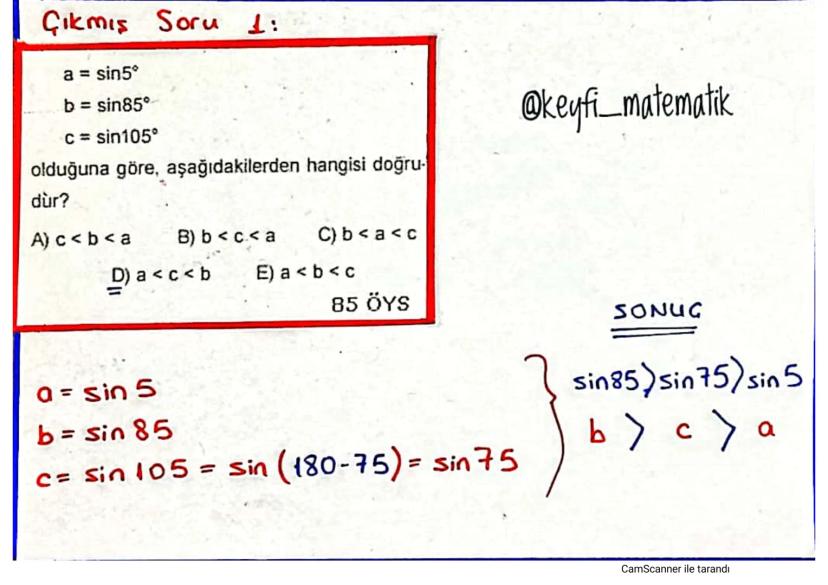 Çıkmış Soru 1:
a = sin5°
b = sin85°
c = sin105°
olduğuna göre, aşağıdakilerden hangisi doğru-
dùr?
A) c < b < a B) b < c < a C) b < a < c
D) a < c < b E) a < b < c
85 ÖYS
@keyfi_matematik
a = sin 5
b = sin 85
c = sin 105 = sin (180-75) = sin 75
SONUÇ
sin85 > sin75 > sin 5
b > c > a
CamScanner ile tarandı